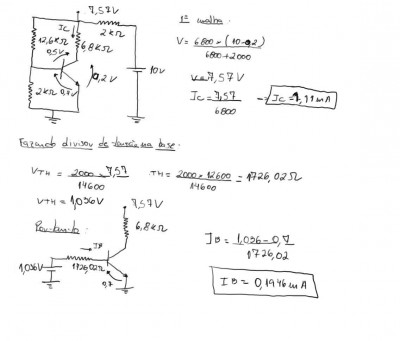 7,57V
1ª malha.
Ic
2kΩ
12,6kΩ
6,8kΩ
0,5V
0,2V
10v
2kΩ
0,7V
V = 6800 × (10-0,2)
6800+2000
V = 7,57V
Ic = 7,57
6800
→ Ic = 1,11mA
Fazendo divisor de tensão na base.
VTH = 2000 × 7,57
14600
TH = 2000 × 12600 = 1726,02Ω
14600
VTH = 1,036V
7,57V
Portanto:
6,8kΩ
IB
1,036V
1726,02Ω
0,7
IB = 1,036-0,7
1726,02
IB = 0,1946mA